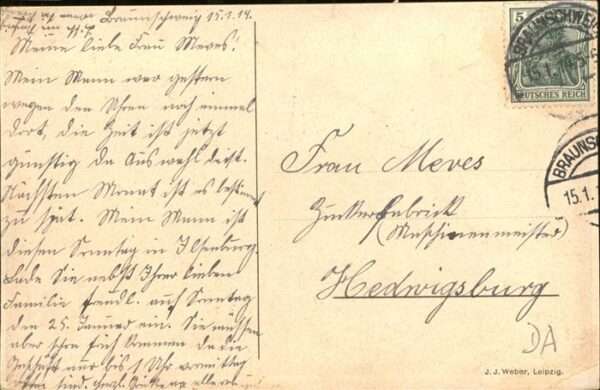 Braunschweig 15.1.14.
Meine liebe Frau Meves!
Mein Mann war gestern
wegen den Uhren noch einmal
dort, die Zeit ist jetzt
günstig da Auswahl
Nächsten Monat ist es bestimmt
zu spät. Mein Mann ist
diesen Sonntag in Ilsenburg.
Lade Sie nebst Ihrer lieben
Familie freundl. auf Sonntag
den 25. Januar ein. Sie müssen
aber schon früh kommen da die
Geschäfte nur bis 1 Uhr vormittag
sind.
5
DEUTSCHES REICH
BRAUNSCHWEIG
15.1.14
BRAUNSC
15.1.1
Frau Meves
Zuckerfabrick
(Maschinenmeister)
Hedwigsburg
DA
J. J. Weber, Leipzig.